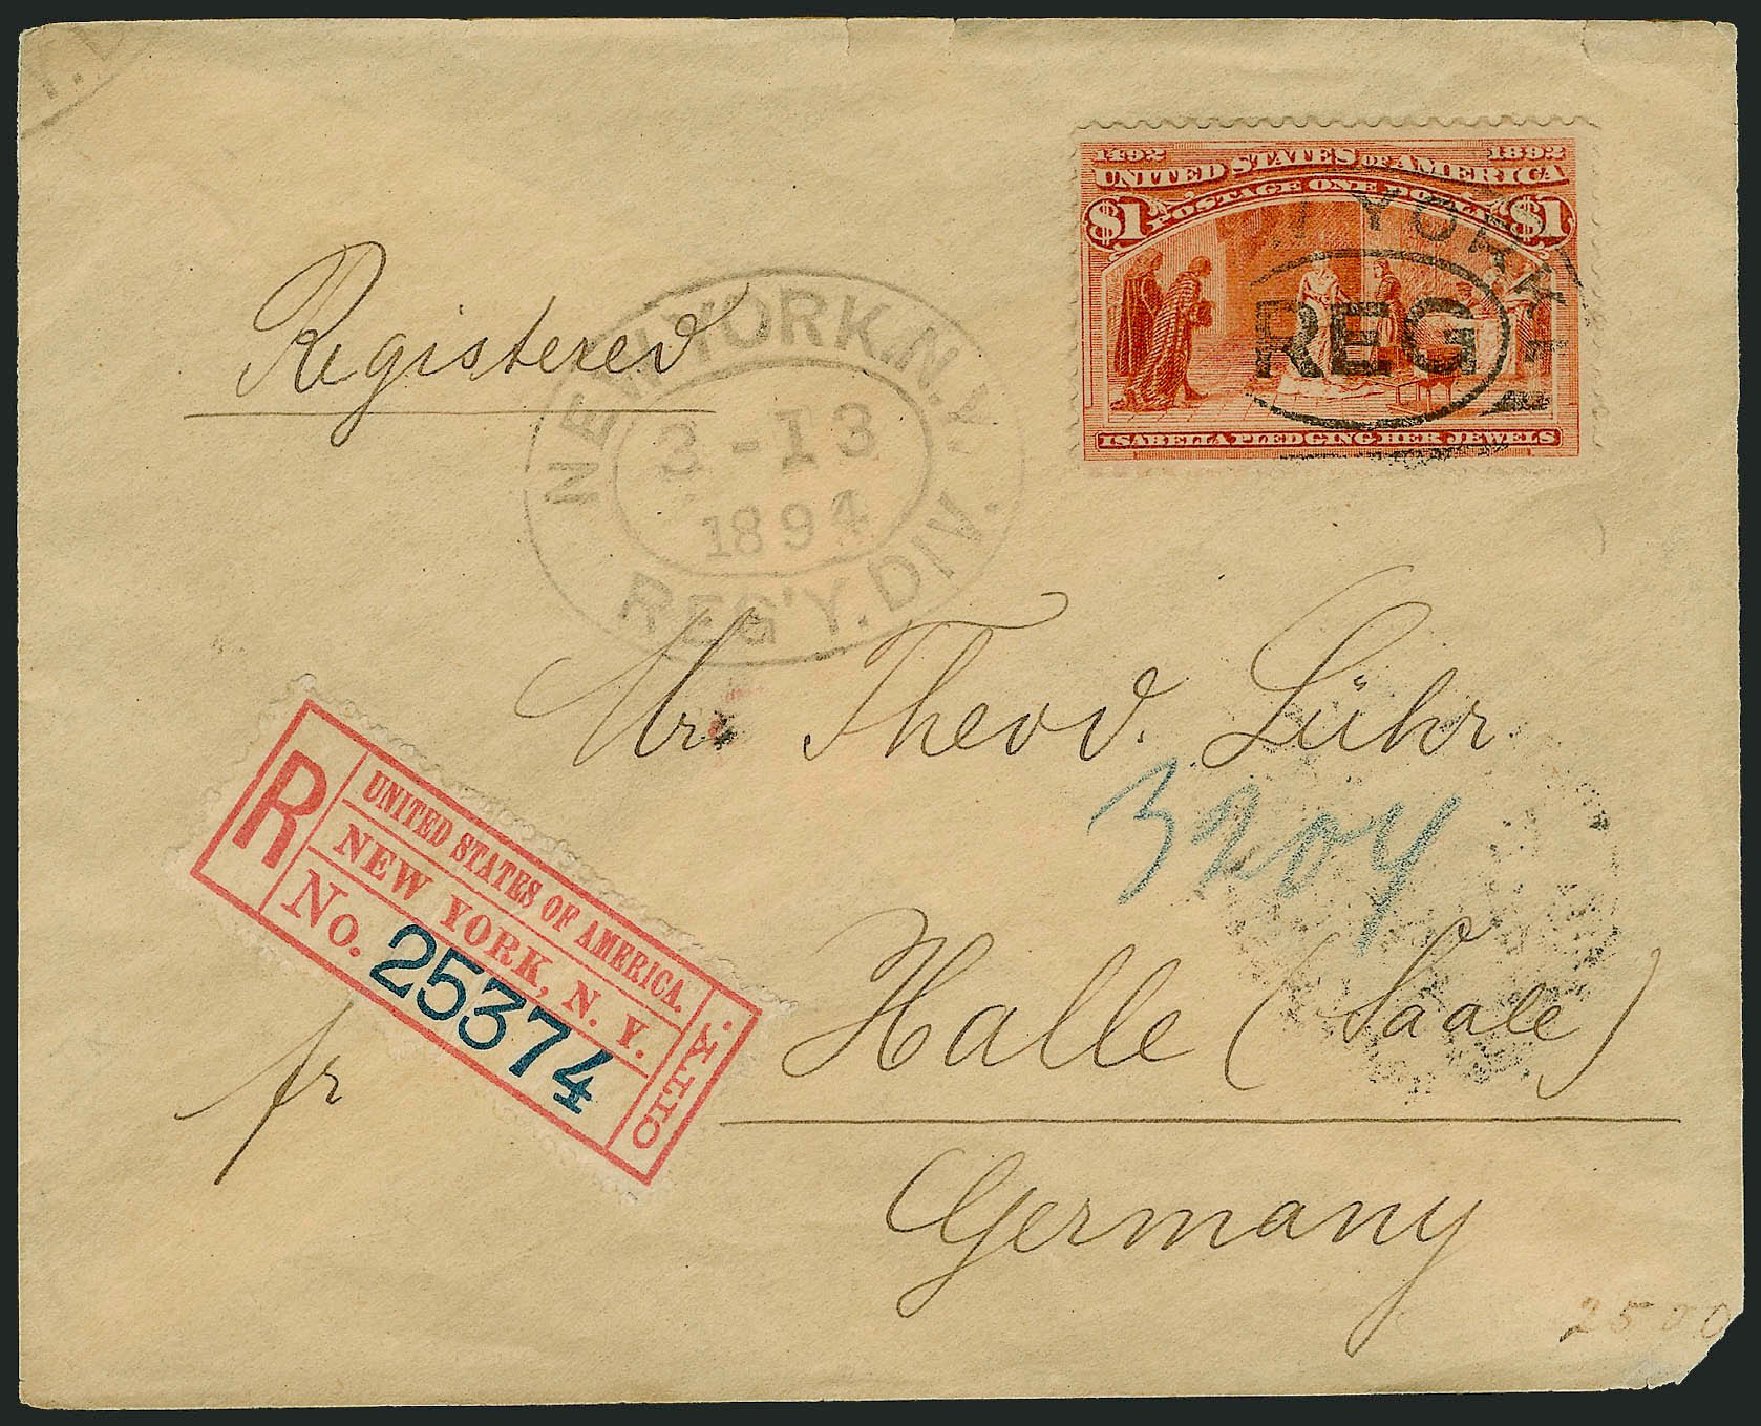 1492 1892
UNITED STATES OF AMERICA
POSTAGE ONE DOLLAR
$1 $1
YORK
REG
ISABELLA PLEDGING HER JEWELS
Registered
NEW YORK, N.Y.
3-13
1894
REG'Y. DIV.
Mr. Theod. Lühr.
3204
R
UNITED STATES OF AMERICA.
NEW YORK, N. Y.
No. 25374
fr
Halle (Saale)
Germany
2500